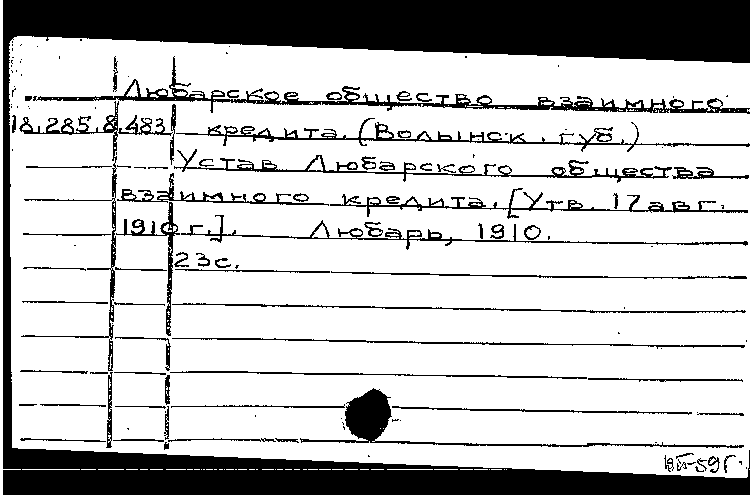 Любарское общество взаимного
18.285.8.483 кредита. (Волынск. губ.)
Устав Любарского общества
взаимного кредита. [Утв. 17 авг.
1910 г.]. Любарь, 1910.
23с.